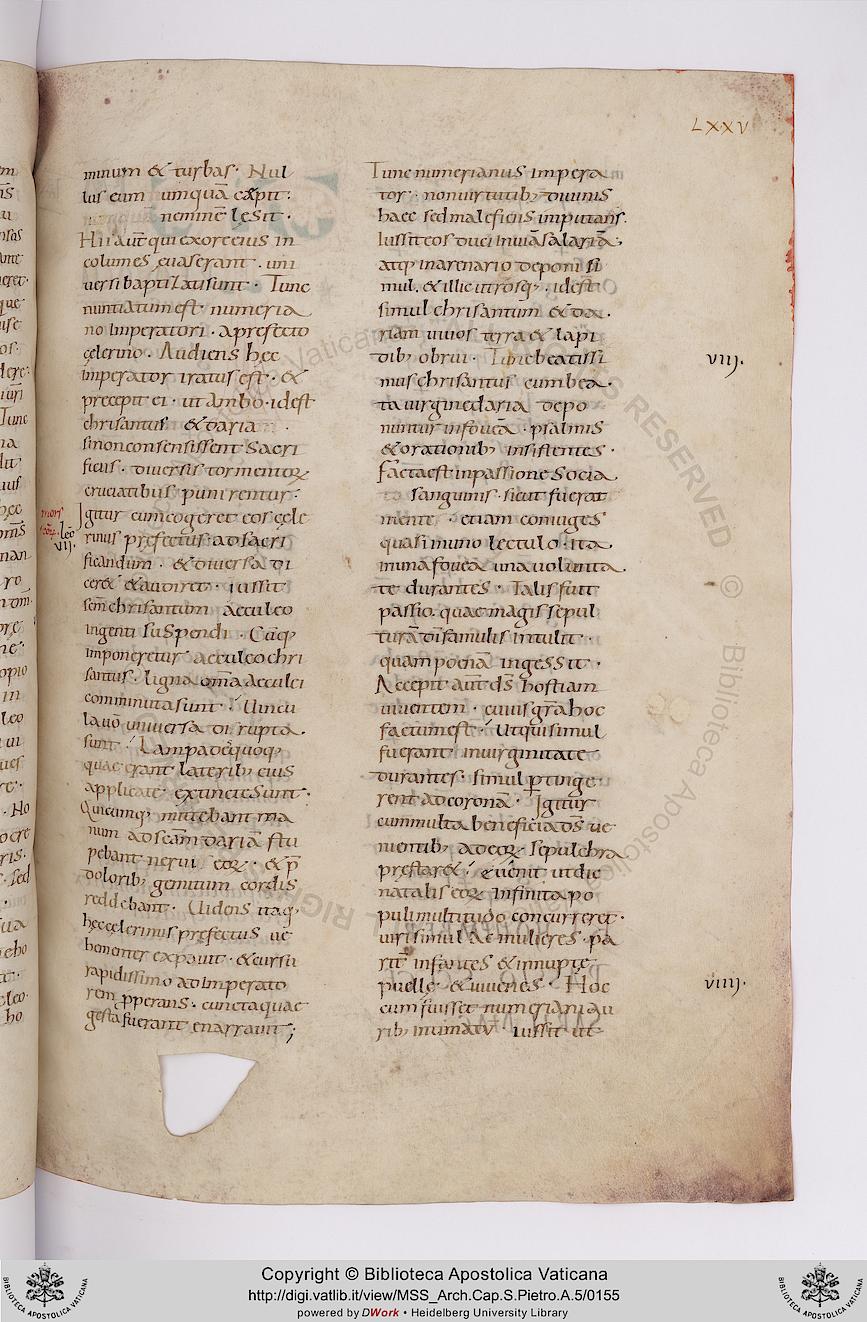 LXXV
minum & turbas· Nul
lus eum umquā cępit:
neminē lęsit·
Hii aūt qui ex ore eius in
columes euaserant· uni
uersi baptizati sunt· Tunc
nuntiatum est· numeria
no imperatori· a prefecto
celerino· Audiens hęc
imperator iratus est· &
precepit ei· ut ambo· idest
chrisantus & daria
si non consensissent sacri
ficiis· diuersis tormentorꝝ
cruciatibus punirentur:
Igitur cum cogeret eos cęle
rinus prefectus ad sacri
ficandum· & diuersa di
cer& & audir&· iussit
sc̄m chrisantum aculeo
ingenti suspendi· Cūq;
imponeretur aculeo chri
santus· ligna om̄a aculei
comminuta sunt· Uincu
la uō uniuersa disrupta
sunt· Lampadęquoq;
quae erant laterib; eius
applicate extincte sunt·
Quicumq; mittebant ma
num ad sc̄am dariā stu
pebant nerui eorꝝ· & p̄
dolorib; gemitum cordis
reddebant· Uidens itaq;
hęc celerinus prefectus ue
hementer expauit· & cursu
rapidissimo ad imperato
rem pperans· cuncta quae
gesta fuerant enarrauit;
mors
eoꝝ·
lec̄
vii·
Tunc numerianus impera
tor· non uirtutib; diuinis
haec sed maleficiis imputans·
Iussit eos duci in uiā salariā·
atq; in arenario deponi si
mul· & illic utrosq;· idest
simul chrisantum & da
riam uiuos terra & lapi
dib; obrui· Tunc beatissi
mus chrisantus cum bea
ta uirgine daria depo
nuntur in foueā· psalmis
& orationib; insistentes·
Facta est in passione socia
sanguinis· sicut fuerat
mente· etiam coniuges
quasi in uno lectulo· ita
in una fouea una uolunta
te durantes· Talis fuit
passio· quae magis sepul
turā dī famulis intulit·
quam poenā ingessit·
Accepit aūt ds̄ hostiam
uiuentem· cuius gr̄a hoc
factum est· Ut qui simul
fuerant in uirginitate
durantes· simul ptinge
rent ad coronā· Igitur
cum multa beneficia ds̄ ue
nientib; ad eorꝝ sepulchra
prestar&· euenit ut die
natalis eorꝝ infinita po
puli multitudo concurreret·
uiri simul ac mulieres· pa
rit̄ infantes & innupte
puelle· & iuuenes· Hoc
cum fuisset numeriani au
rib; intimatū· iussit ut
viij·
viiij·
Copyright © Biblioteca Apostolica Vaticana
http://digi.vatlib.it/view/MSS_Arch.Cap.S.Pietro.A.5/0155
powered by DWork • Heidelberg University Library
BIBLIOTECA APOSTOLICA VATICANA
BIBLIOTECA APOSTOLICA VATICANA